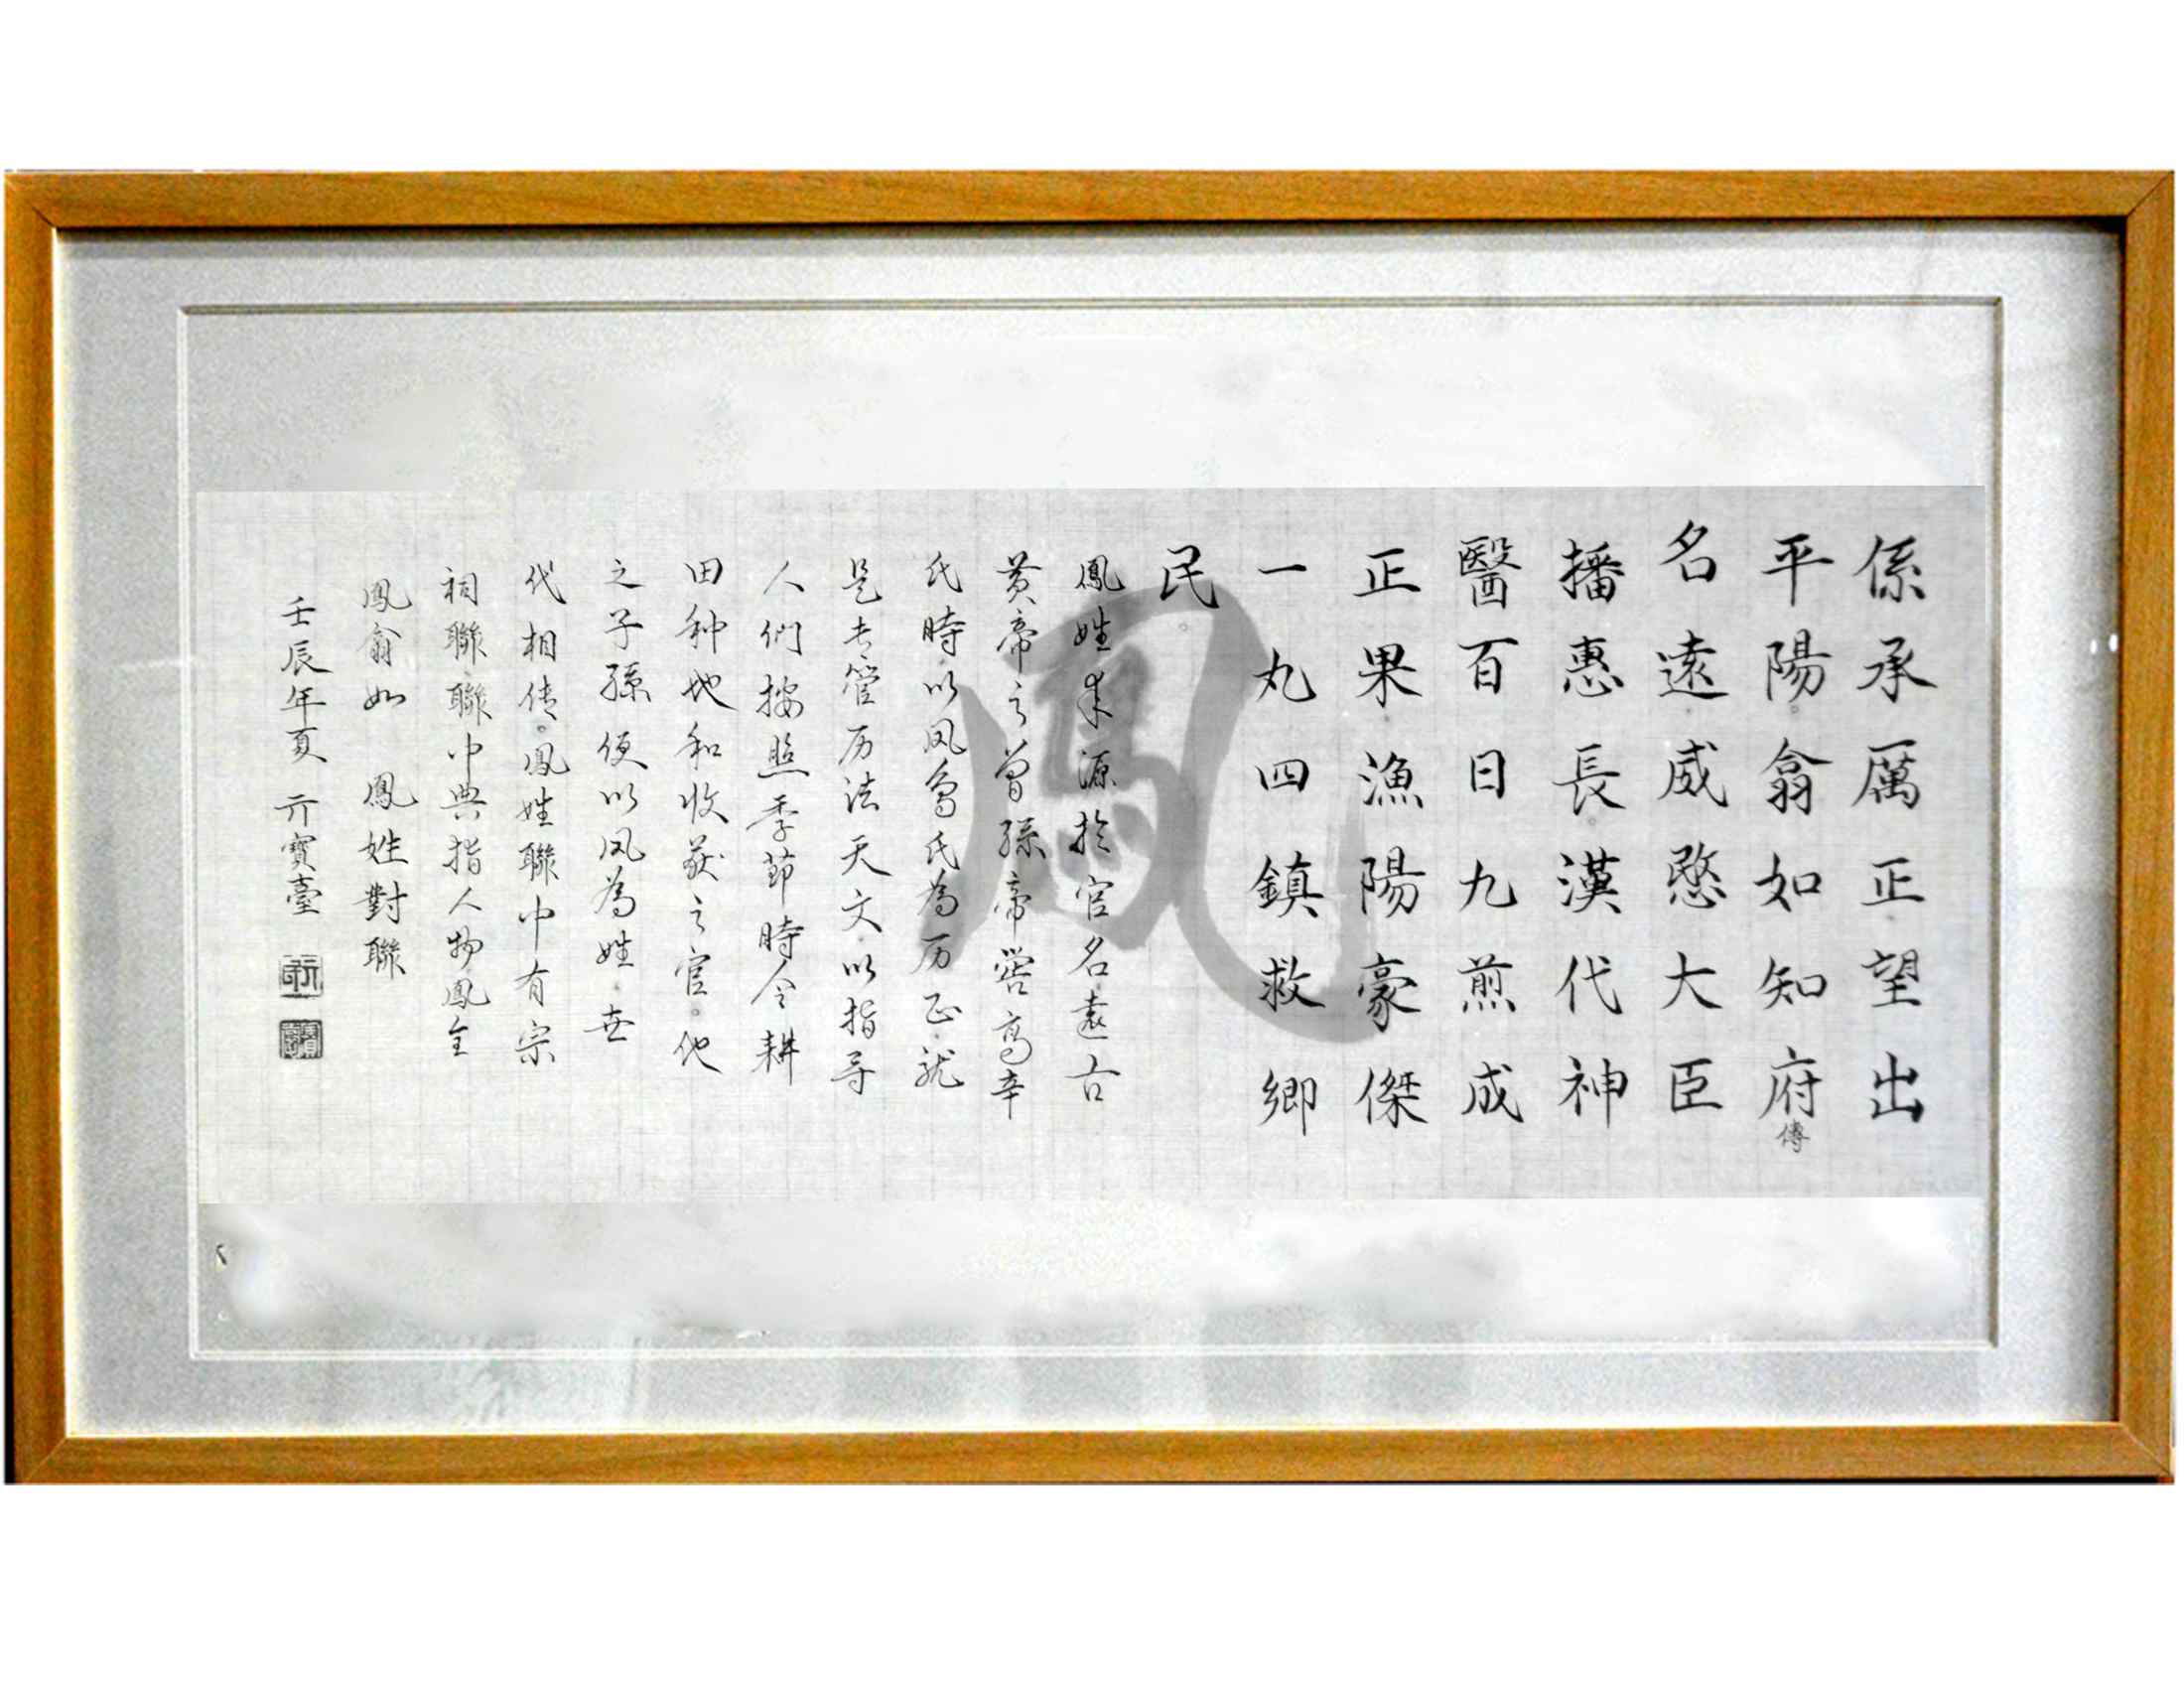 係承厲正望出
平陽翕如知府傳
名遠威愍大臣
播惠長漢代神
醫百日九煎成
正果漁陽豪傑
一丸四鎮救鄉
民
鳳
鳳姓来源於官名遠古
黄帝之曾孫帝喾高辛
氏時以凤鸟氏為历正就
是专管历法天文以指导
人們按照季節時令耕
田种地和收获之官。他
之子孫便以凤為姓世
代相传。鳳姓聯中有宗
祠聯聯中典指人物鳳全
鳳翕如 鳳姓對聯
壬辰年夏 亓寶臺